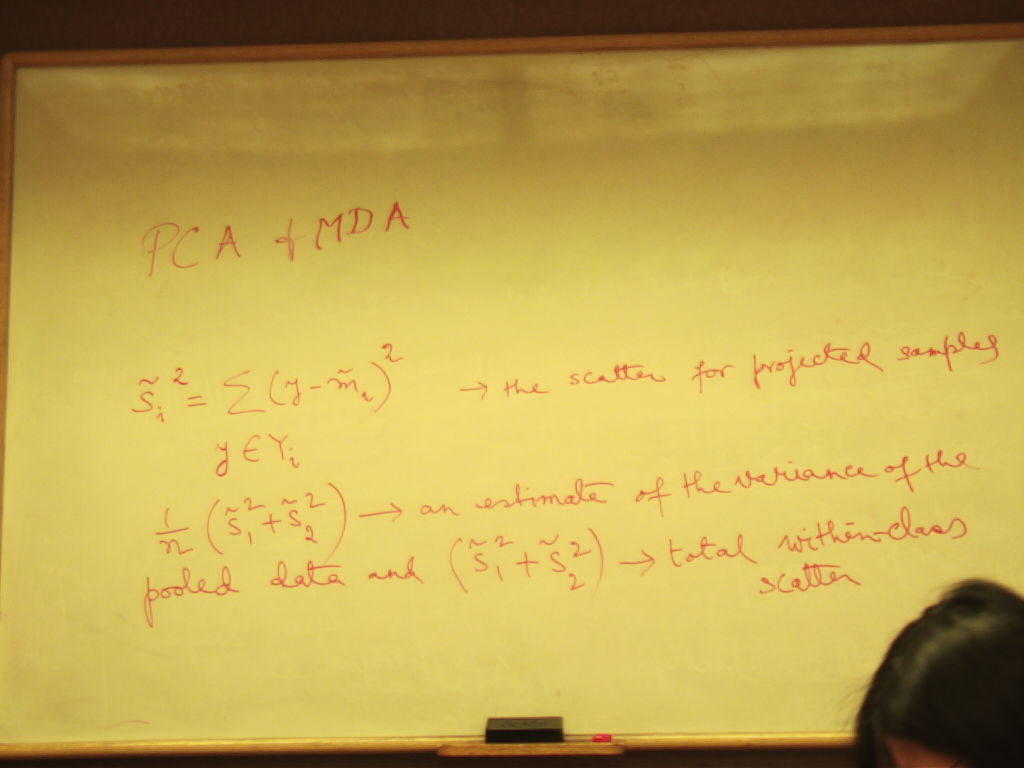 PCA & MDA
s̃ᵢ² = Σ (y - m̃ᵢ)² → the scatter for projected samples
y ∈ Yᵢ
1/n (s̃₁² + s̃₂²) → an estimate of the variance of the
pooled data and (s̃₁² + s̃₂²) → total within-class
scatter